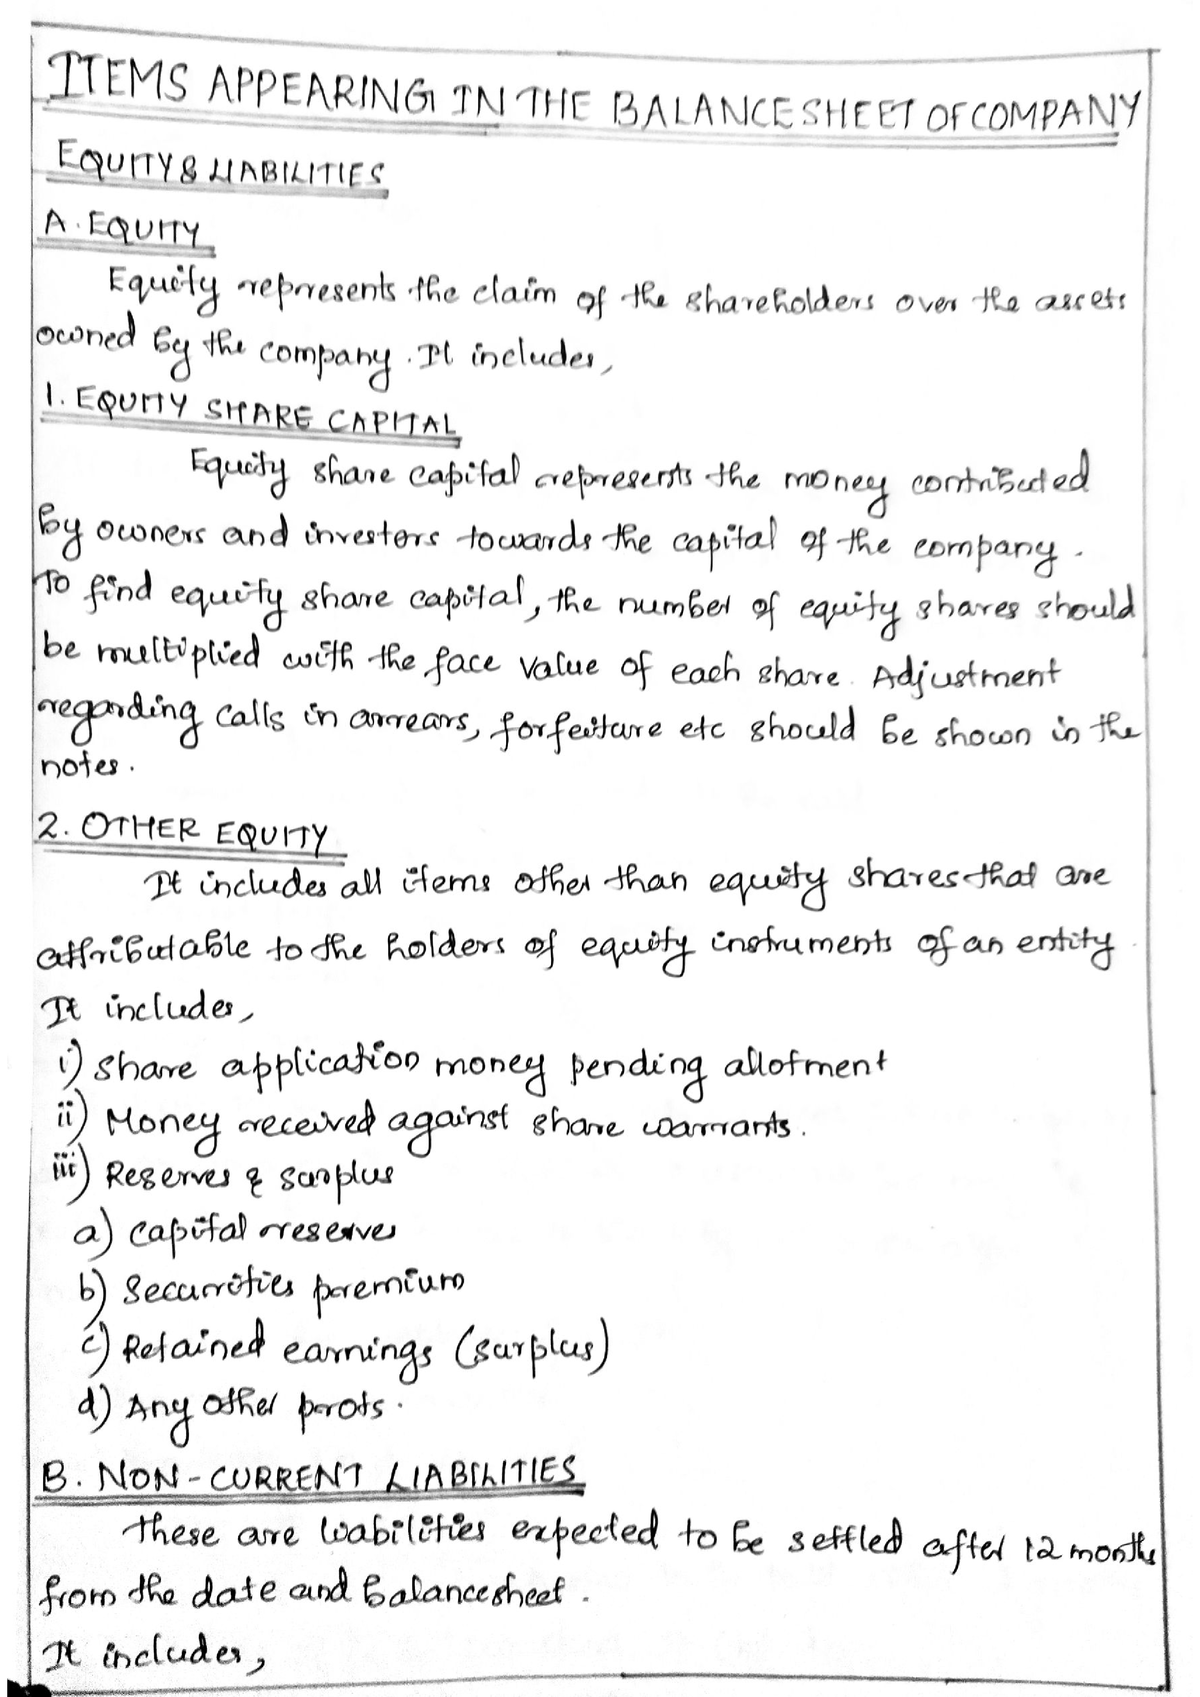 ITEMS APPEARING IN THE BALANCE SHEET OF COMPANY
EQUITY & LIABILITIES
A. EQUITY
Equity represents the claim of the shareholders over the assets
owned by the company. It includes,
1. EQUITY SHARE CAPITAL
Equity share capital represents the money contributed
by owners and investors towards the capital of the company.
To find equity share capital, the number of equity shares should
be multiplied with the face value of each share. Adjustment
regarding calls in arrears, forfeiture etc should be shown in the
notes.
2. OTHER EQUITY
It includes all items other than equity shares that are
attributable to the holders of equity instruments of an entity.
It includes,
i) Share application money pending allotment
ii) Money received against share warrants.
iii) Reserves & surplus
a) Capital reserves
b) Securities premium
c) Retained earnings (surplus)
d) Any other
B. NON-CURRENT LIABILITIES
These are liabilities expected to be settled after 12 months
from the date and balancesheet.
It includes,